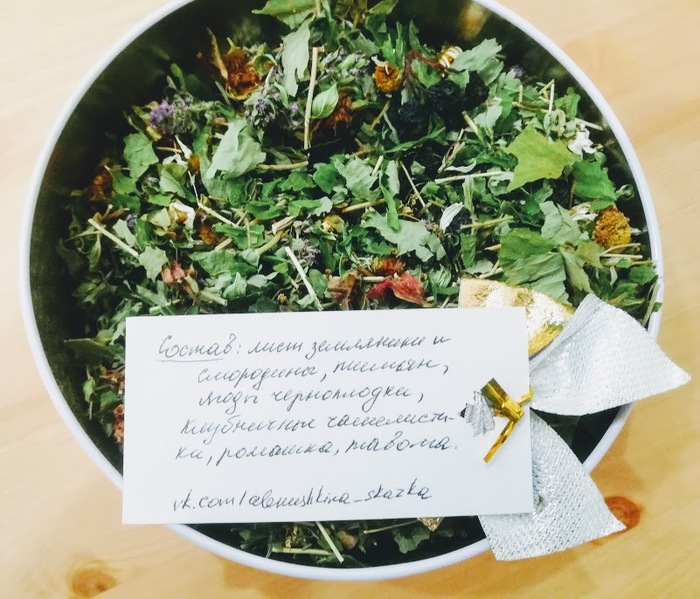 Состав: лист земляники и
смородины, тимьян,
ягоды черноплодки,
клубничные чашелисти-
ки, ромашка, таволга.
vk.com/alenushkina_skazka